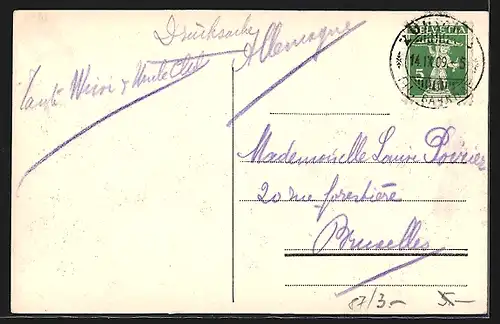 Drucksache
Allemagne
HELVETIA
5
14.IX.09
Tante & Uncle
Mademoiselle Laure Poirier
20 rue forestière
Bruxelles
87/3- 5-